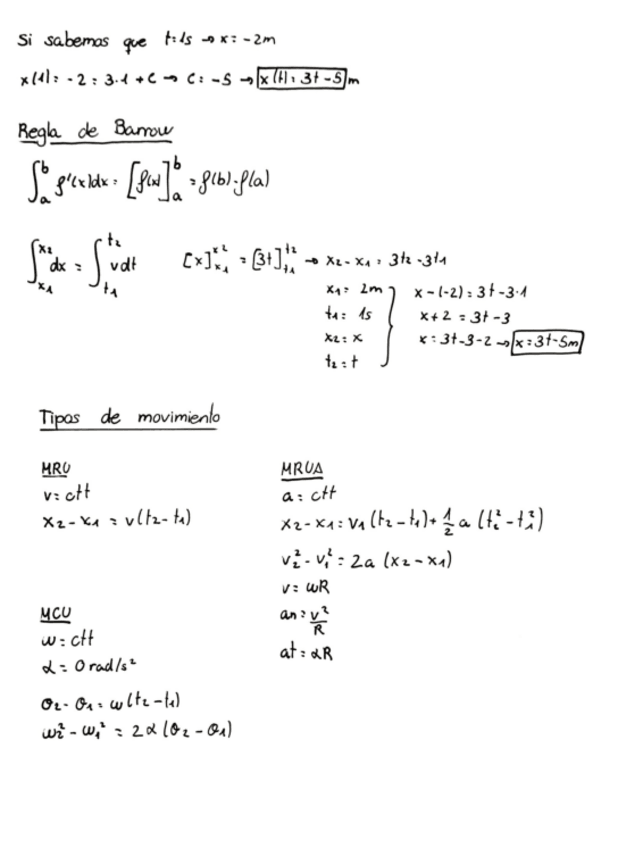 Si sabemos que t=1s → x=-2m
x(1)=-2=3·1+C → C=-5 → x(t)=3t-5 m
Regla de Barrow
∫_a^b f'(x)dx = [f(x)]_a^b = f(b)-f(a)
∫_{x1}^{x2} dx = ∫_{t1}^{t2} vdt [x]_{x1}^{x2} = [3t]_{t1}^{t2} → x2-x1 = 3t2-3t1
x1= 2m } x-(-2)=3t-3·1
t1= 1s x+2 = 3t-3
x2= x x=3t-3-2 → x=3t-5m
t2=t
Tipos de movimiento
MRU
v=ctt
x2-x1 = v(t2-t1)
MRUA
a=ctt
x2-x1=v1(t2-t1)+1/2 a (t2²-t1²)
v2²-v1²=2a (x2-x1)
v=ωR
an=v²/R
at=αR
MCU
ω=ctt
α=0rad/s²
θ2-θ1=ω(t2-t1)
ω2²-ω1² = 2α(θ2-θ1)